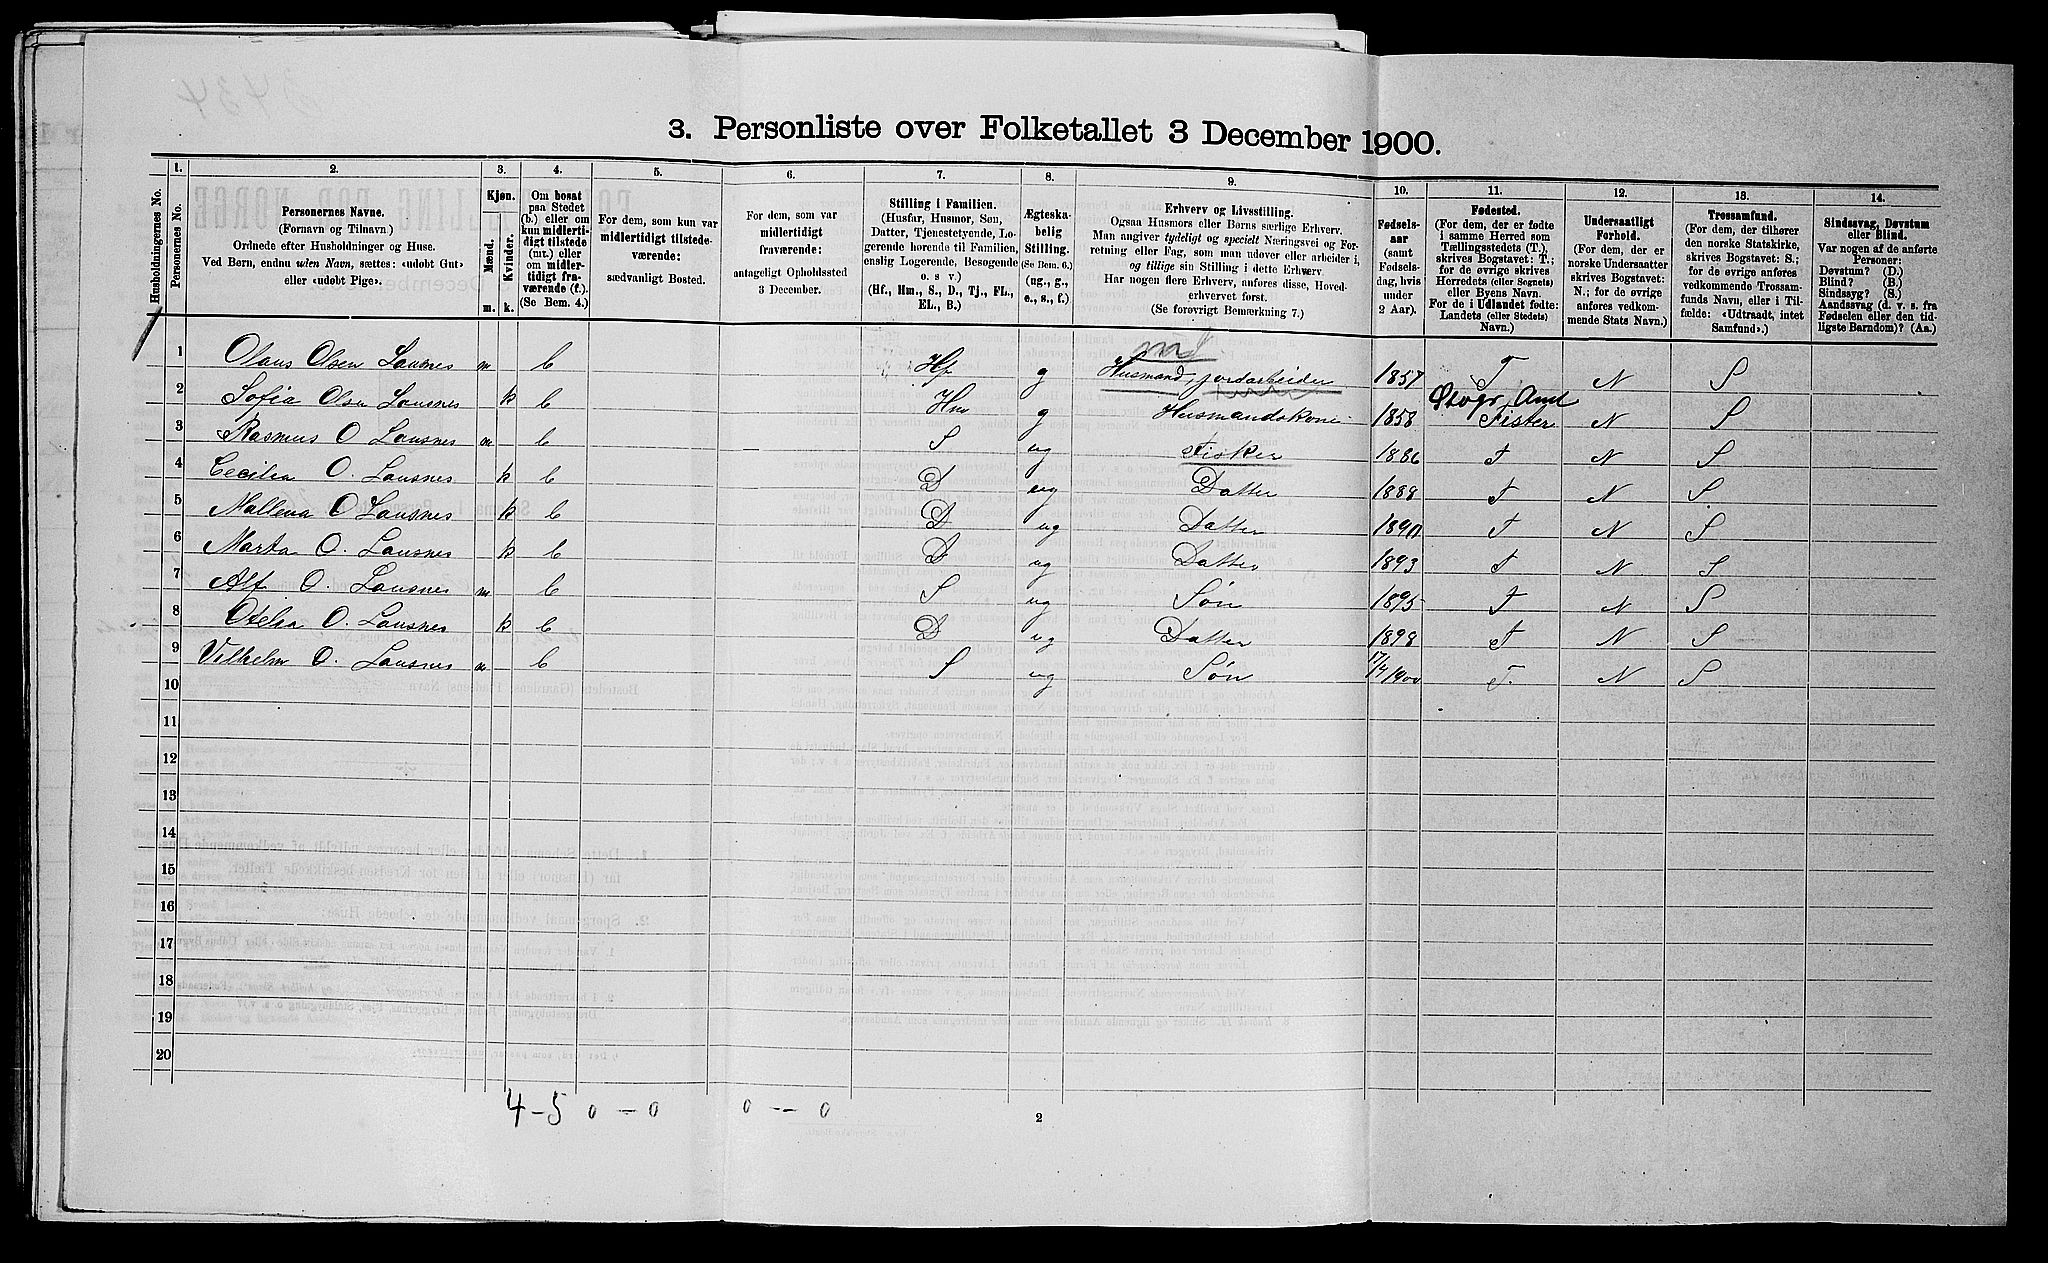 3434
3. Personliste over Folketallet 3 December 1900.
Husholdningernes No.
1.
Personernes No.
2.
Personernes Navne.
(Fornavn og Tilnavn.)
Ordnede efter Husholdninger og Huse.
Ved Børn, endnu uden Navn, sættes: «udøbt Gut»
eller «udøbt Pige».
3.
Kjøn.
Mænd.
Kvinder.
m. k.
4.
Om bosat
paa Stedet
(b.) eller om
kun midlerti-
digt tilstede
(mt.) eller
om midler-
tidigt fra-
værende (f.)
(Se Bem. 4.)
5.
For dem, som kun var
midlertidigt tilstede-
værende:
sædvanligt Bosted.
6.
For dem, som var
midlertidigt
fraværende:
antageligt Opholdssted
3 December.
7.
Stilling i Familien.
(Husfar, Husmor, Søn,
Datter, Tjenestetyende, Lo-
gerende hørende til Familien,
enslig Logerende, Besøgende
o. s v.)
(Hf., Hm., S., D., Tj., FL.,
EL., B.)
8.
Ægteska-
belig
Stilling.
(Se Bem. 6.)
(ug., g.,
e., s., f.)
9.
Erhverv og Livsstilling.
Ogsaa Husmors eller Børns særlige Erhverv.
Man angiver tydeligt og specielt Næringsvei og For-
retning eller Fag, som man udover eller arbeider i,
og tillige sin Stilling i dette Erhverv.
Har nogen flere Erhverv, anføres disse, Hoved-
erhvervet først.
(Se forøvrigt Bemærkning 7.)
10.
Fødsels-
aar
(samt
Fødsels-
dag, hvis
under
2 Aar).
11.
Fødested.
(For dem, der er fødte
i samme Herred som
Tællingsstedets (T.),
skrives Bogstavet: T.;
for de øvrige skrives
Herredets (eller Sognets)
eller Byens Navn.
For de i Udlandet fødte:
Landets (eller Stedets)
Navn.)
12.
Undersaatligt
Forhold.
(For dem, der er
norske Undersaatter
skrives Bogstavet:
N.; for de øvrige
anføres vedkom-
mende Stats Navn.)
13.
Trossamfund.
(For dem, der tilhører
den norske Statskirke,
skrives Bogstavet: S.;
for de øvrige anføres
vedkommende Trossam-
funds Navn, eller i Til-
fælde: «Udtraadt, intet
Samfund».)
14.
Sindssvag, Døvstum
eller Blind.
Var nogen af de anførte
Personer:
Døvstum? (D.)
Blind? (B.)
Sindssyg? (S.)
Aandssvag (d. v. s. fra
Fødselen eller den tid-
ligste Barndom)? (Aa.)
1 Olaus Olsen Lausnes m b Hf g Husmand, jordarbeider 1857 T N S
2 Sofia Olsen Lausnes k b Hm g Husmandskone 1858 Fister N S
3 Rasmus O Lausnes m b S ug Fisker 1886 T N S
4 Cecilia O. Lausnes k b D ug Datter 1888 T N S
5 Mallena O Lausnes k b D ug Datter 1890 T N S
6 Marta O. Lausnes k b D ug Datter 1893 T N S
7 Alf O. Lausnes m b S ug Søn 1895 T N S
8 Otelia O. Lausnes k b D ug Datter 1898 T N S
9 Vilhelm O. Lausnes m b S ug Søn 17/4 1900 T. N S
10
11
12
13
14
15
16
17
18
19
20
4-5 0-0 0--0
2